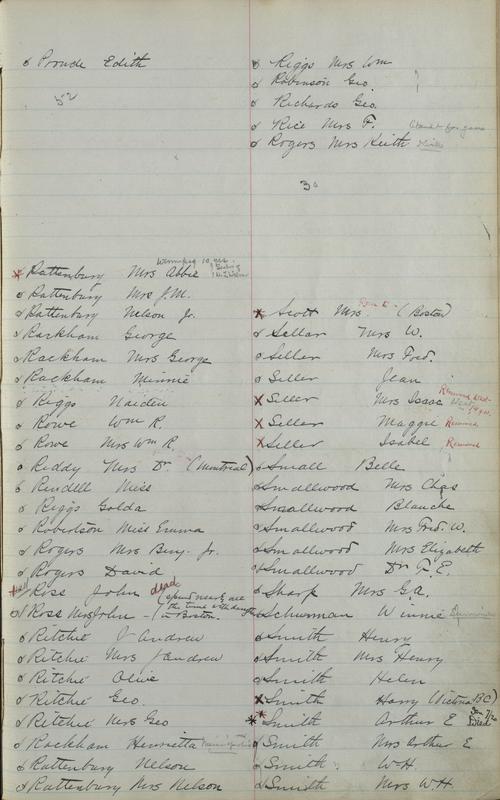 Proude Edith
52
Rattenbury Mrs Abbie Winnipeg 10 yrs.
Rattenbury Mrs J.M.
Rattenbury Nelson Jr.
Rackham George
Rackham Mrs George
Rackham Minnie
Riggs Maiden
Rowe Wm R.
Rowe Mrs Wm R.
Reddy Mrs Dr. (Montreal)
Rendell Miss
Riggs Golda
Robertson Miss Emma
Rogers Mrs Benj. Jr.
Rogers David
Ross John dead
Ross Mrs John (spend nearly all the time with daughter in Boston.
Ritchie J Andrew
Ritchie Mrs J Andrew
Ritchie Olive
Ritchie Geo.
Ritchie Mrs Geo
Rackham Henrietta
Rattenbury Nelson
Rattenbury Mrs Nelson
Riggs Mrs Wm
Robinson Geo.
Richards Geo.
Rice Mrs F.
Rogers Mrs Keith
30
Scott Mrs. (Boston)
Sellar Mrs W.
Seller Mrs Fred.
Seller Jean
Seller Mrs Isaac Removed West
Seller Maggie Removed
Seller Isabel Removed
Small Belle
Smallwood Mrs Chas
Smallwood Blanche
Smallwood Mrs Fred. W.
Smallwood Mrs Elizabeth
Smallwood Dr F. E.
Sharp Mrs G.A.
Schurman Winnie
Smith Henry
Smith Mrs Henry
Smith Helen
Smith Harry (Victoria BC)
Smith Arthur E Died
Smith Mrs Arthur E
Smith W.H.
Smith Mrs W.H.